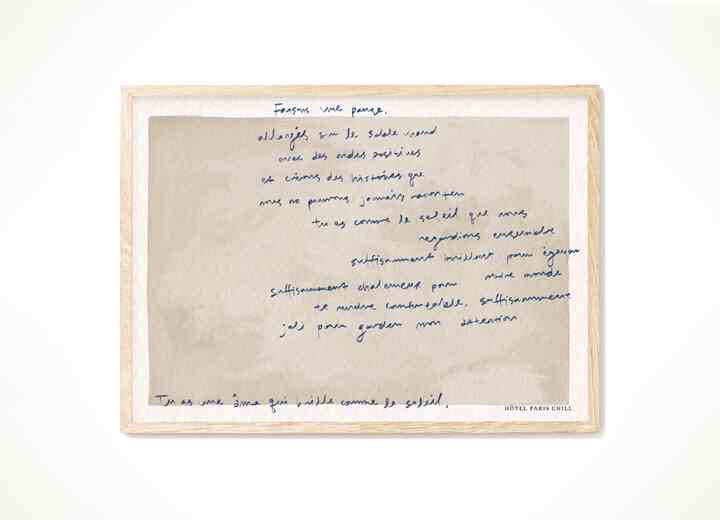 Faisons une pause.
allongés sur le sable chaud
avec des ondes positives
et créons des histoires que
nous ne pouvons jamais raconter
tu es comme le soleil que nous
regardions ensemble
suffisamment brillant pour égayer
suffisamment chaleureux pour notre monde
te rendre confortable, suffisamment
joli pour garder mon attention
Tu as une âme qui brille comme le soleil.
HÔTEL PARIS CHILL